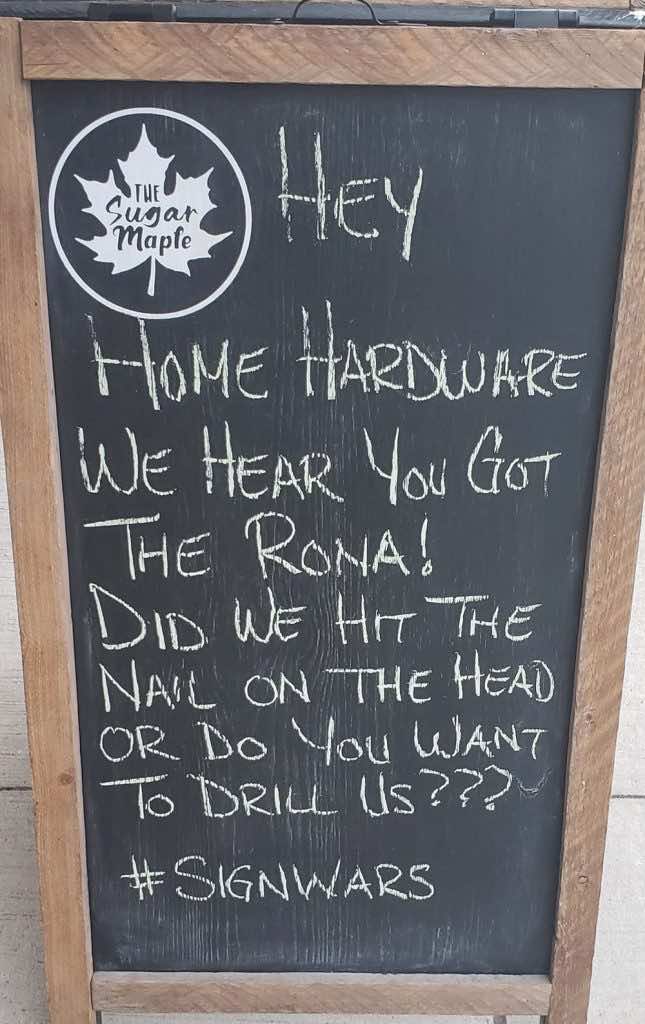 THE
Sugar
Maple
HEY
HOME HARDWARE
WE HEAR YOU GOT
THE RONA!
DID WE HIT THE
NAIL ON THE HEAD
OR DO YOU WANT
TO DRILL US???
#SIGNWARS